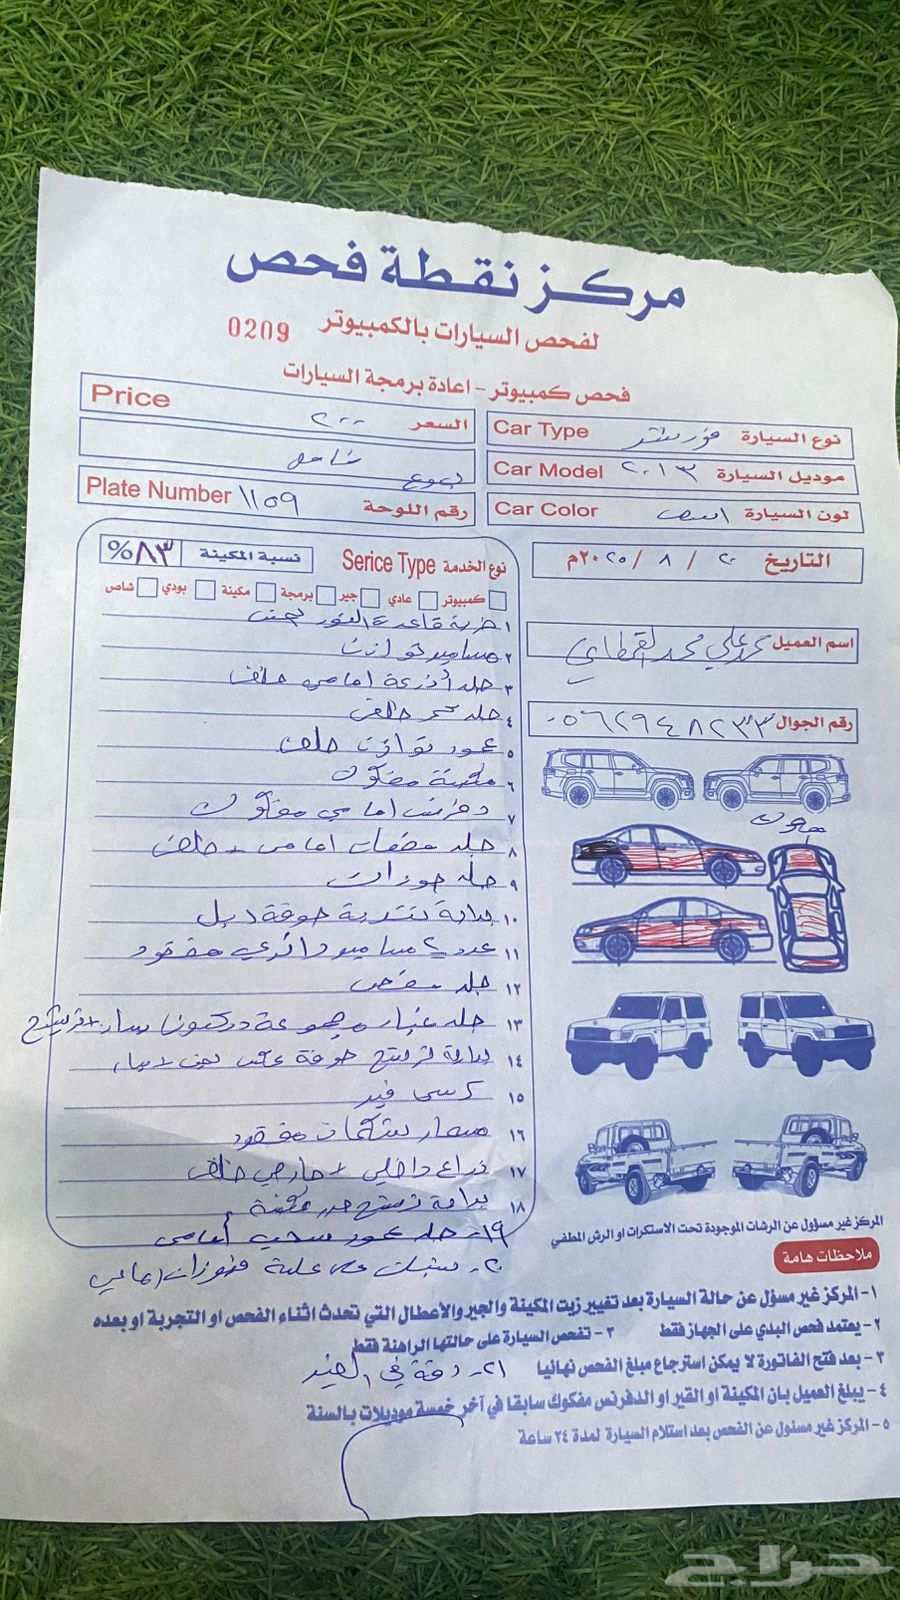 مركز نقطة فحص
لفحص السيارات بالكمبيوتر 0209
فحص كمبيوتر - اعادة برمجة السيارات
نوع السيارة فورشنر Car Type
السعر ٢٠٠ Price
موديل السيارة ٢٠١٣ Car Model
شامل
لون السيارة ابيض Car Color
رقم اللوحة ١١٥٩ Plate Number
التاريخ ٢٠ / ٨ / ٢٠٢٥م
نوع الخدمة Serice Type
نسبة المكينة ٨٣%
كمبيوتر عادي جير برمجة مكينة بودي شاص
اسم العميل علي محمد القحطاني
رقم الجوال ٠٥٦٢٩٤٨٢٣٣
١ ضربة قاعدة
٢ مسامير توازن
٣ جلد أذرعة امامي خلف
٤ جلد خلف
٥ عمود توازن خلف
٦ مكينة مفكوك
٧ دفرنس امامي مفكوك
٨ جلد مقصات امامي + خلف
٩ جلد جوزات
١٠ بداية تندية
١١ عدد ٢ مسامير مفقود
١٢ جلد مقص
١٣ جلد غبار مجموعة دركسون يسار +
١٤ بداية ترشيح
١٥ كرسي قير
١٦ مسمار مفقود
١٧ ذراع داخلي + خارجي خلف
١٨ بداية ترشيح صدر مكينة
١٩- جلد عمود سحب أمامي
٢٠- علبة امامي
المركز غير مسؤول عن الرشات الموجودة تحت الاستكرات او الرش المطفي
ملاحظات هامة
١- المركز غير مسؤل عن حالة السيارة بعد تغيير زيت المكينة والجير والاعطال التي تحدث اثناء الفحص او التجربة او بعده
٢- يعتمد فحص البدي على الجهاز فقط ٣- تفحص السيارة على حالتها الراهنة فقط
٣- بعد فتح الفاتورة لا يمكن استرجاع مبلغ الفحص نهائيا
٢١- دقة في
٤- يبلغ العميل بان المكينة او القير او الدفرنس مفكوك سابقا في آخر خمسة موديلات بالسنة
٥- المركز غير مسئول عن الفحص بعد استلام السيارة لمدة ٢٤ ساعة
حراج